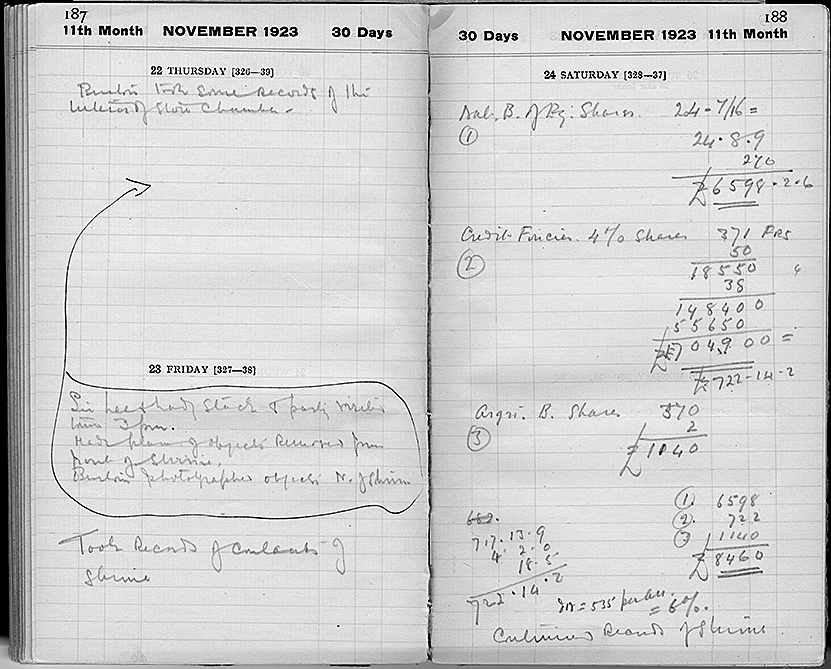 187
11th Month NOVEMBER 1923 30 Days
22 THURSDAY [326—39]
Burton took some records of the
interior of Store Chamber.
23 FRIDAY [327—38]
Sir Lee & Lady Stack & party visited
tomb 3 pm.
Made plan of objects removed from
front of Shrine.
Burton photographed objects N. of Shrine
Took Records of contents of
Shrine
188
30 Days NOVEMBER 1923 11th Month
24 SATURDAY [328—37]
Nat. B. of Eg: Shares. 24-7/16 =
①
24.8.9
270
£6598.2.6
Credit-Foncier. 4% Shares 371 FRS
② 50
18550
38
148400
55650
704900 =
£722-14-2
Agri. B. Shares 370
③ 2
£1140
①. 6598
②. 722
③ 1140
£8460
717.13.9
4.2.0
18.5
722.14.2
= 535 per
= 6%.
Continued Records of Shrine.